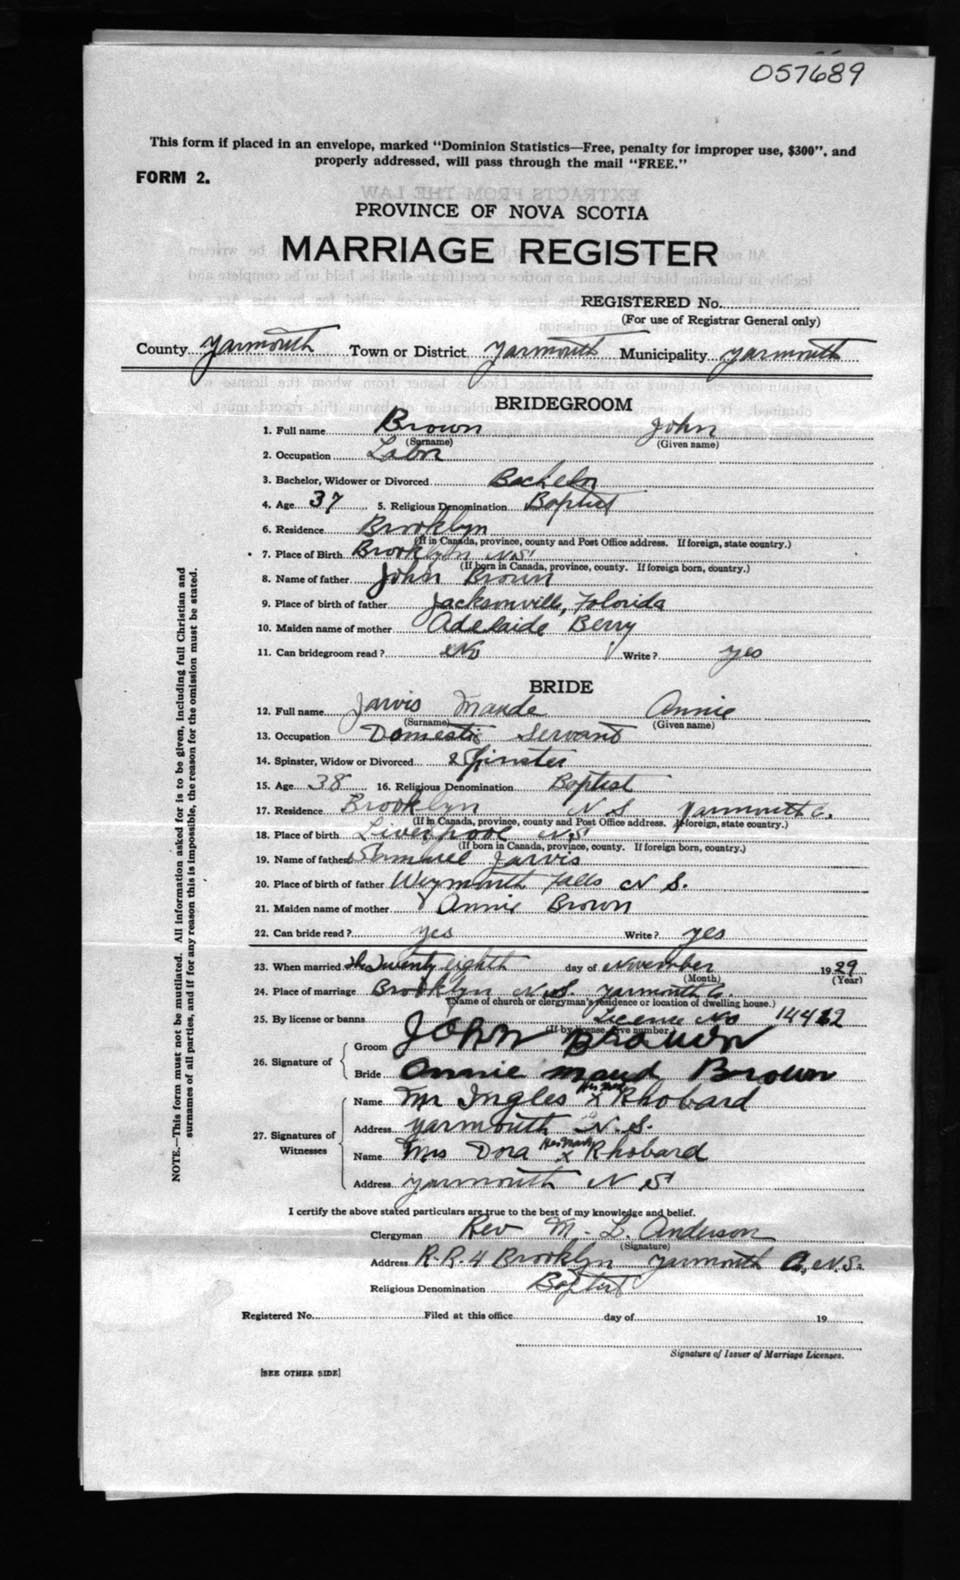 057689
This form if placed in an envelope, marked "Dominion Statistics—Free, penalty for improper use, $300", and
properly addressed, will pass through the mail "FREE."
FORM 2.
PROVINCE OF NOVA SCOTIA
MARRIAGE REGISTER
REGISTERED No.
(For use of Registrar General only)
County Yarmouth Town or District Yarmouth Municipality Yarmouth
BRIDEGROOM
1. Full name Brown John
(Surname) (Given name)
2. Occupation Labor
3. Bachelor, Widower or Divorced Bachelor
4. Age 37 5. Religious Denomination Baptist
6. Residence Brooklyn
(If in Canada, province, county and Post Office address. If foreign, state country.)
7. Place of Birth Brooklyn N.S.
(If born in Canada, province, county. If foreign born, country.)
8. Name of father John Brown
9. Place of birth of father Jacksonville, Folorida
10. Maiden name of mother Adelaide Berry
11. Can bridegroom read? No Write? yes
BRIDE
12. Full name Jarvis Maude Annie
(Surname) (Given name)
13. Occupation Domestic Servant
14. Spinster, Widow or Divorced Spinster
15. Age 38 16. Religious Denomination Baptist
17. Residence Brooklyn N S Yarmouth Co.
(If in Canada, province, county and Post Office address. If foreign, state country.)
18. Place of birth Liverpool N.S.
(If born in Canada, province, county. If foreign born, country.)
19. Name of father Jarvis
20. Place of birth of father Weymouth Falls N S.
21. Maiden name of mother Annie Brown
22. Can bride read? yes Write? yes
23. When married the Twenty eighth day of November 1929
(Month) (Year)
24. Place of marriage Brooklyn N.S. Yarmouth Co.
(Name of church or clergyman's residence or location of dwelling house.)
25. By license or banns License No
(If by license give number.)
26. Signature of
Groom John Brown
Bride Annie Maud Brown
27. Signatures of Witnesses
Name Mr Ingles His Mark X Rhobard
Address Yarmouth N.S.
Name Mrs Dora Her Mark X Rhobard
Address Yarmouth N S
I certify the above stated particulars are true to the best of my knowledge and belief.
Clergyman Rev M. L. Anderson
(Signature)
Address R.R.4 Brooklyn Yarmouth Co, N.S.
Religious Denomination Baptist
Registered No. Filed at this office day of 19
Signature of Issuer of Marriage Licenses.
[SEE OTHER SIDE]
NOTE.—This form must not be mutilated. All information asked for is to be given, including full Christian and
surnames of all parties, and if for any reason this is impossible, the reason for the omission must be stated.